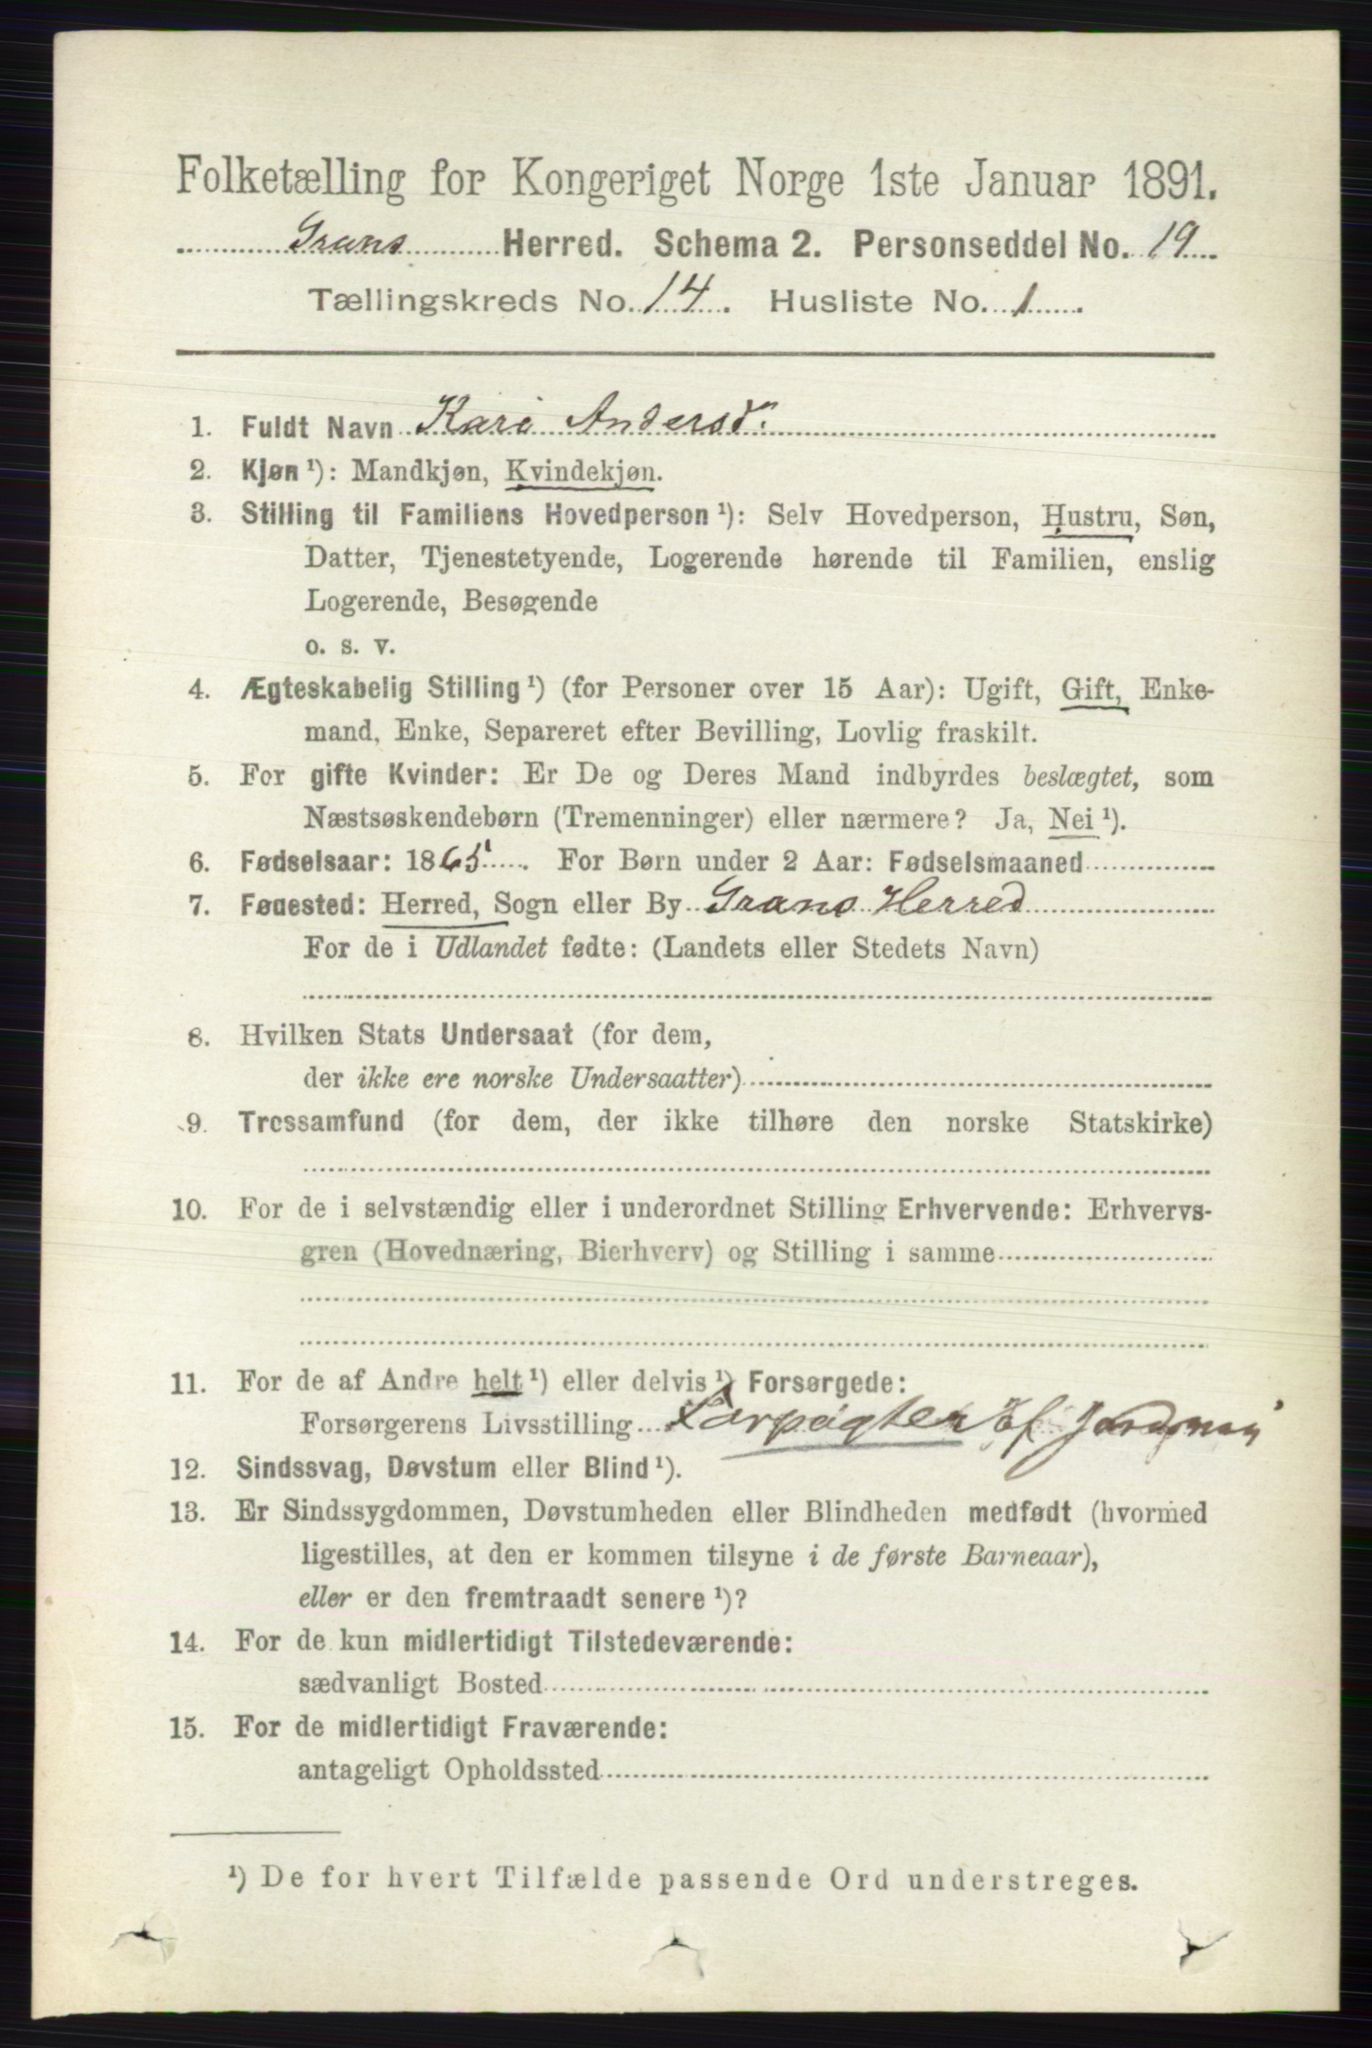 Folketælling for Kongeriget Norge 1ste Januar 1891.
Grans Herred. Schema 2. Personseddel No. 19
Tællingskreds No. 14. Husliste No. 1
1. Fuldt Navn Kari Andersdn.
2. Kjøn ¹): Mandkjøn, Kvindekjøn.
3. Stilling til Familiens Hovedperson ¹): Selv Hovedperson, Hustru, Søn,
Datter, Tjenestetyende, Logerende hørende til Familien, enslig
Logerende, Besøgende
o. s. v.
4. Ægteskabelig Stilling ¹) (for Personer over 15 Aar): Ugift, Gift, Enke-
mand, Enke, Separeret efter Bevilling, Lovlig fraskilt.
5. For gifte Kvinder: Er De og Deres Mand indbyrdes beslægtet, som
Næstsøskendebørn (Tremenninger) eller nærmere? Ja, Nei ¹).
6. Fødselsaar: 1865. For Børn under 2 Aar: Fødselsmaaned
7. Fødested: Herred, Sogn eller By Grans Herred
For de i Udlandet fødte: (Landets eller Stedets Navn)
8. Hvilken Stats Undersaat (for dem,
der ikke ere norske Undersaatter)
9. Trossamfund (for dem, der ikke tilhøre den norske Statskirke)
10. For de i selvstændig eller i underordnet Stilling Erhvervende: Erhvervs-
gren (Hovednæring, Bierhverv) og Stilling i samme
11. For de af Andre helt ¹) eller delvis ¹) Forsørgede:
Forsørgerens Livsstilling Forpagter af
12. Sindssvag, Døvstum eller Blind ¹).
13. Er Sindssygdommen, Døvstumheden eller Blindheden medfødt (hvormed
ligestilles, at den er kommen tilsyne i de første Barneaar),
eller er den fremtraadt senere ¹)?
14. For de kun midlertidigt Tilstedeværende:
sædvanligt Bosted
15. For de midlertidigt Fraværende:
antageligt Opholdssted
¹) De for hvert Tilfælde passende Ord understreges.